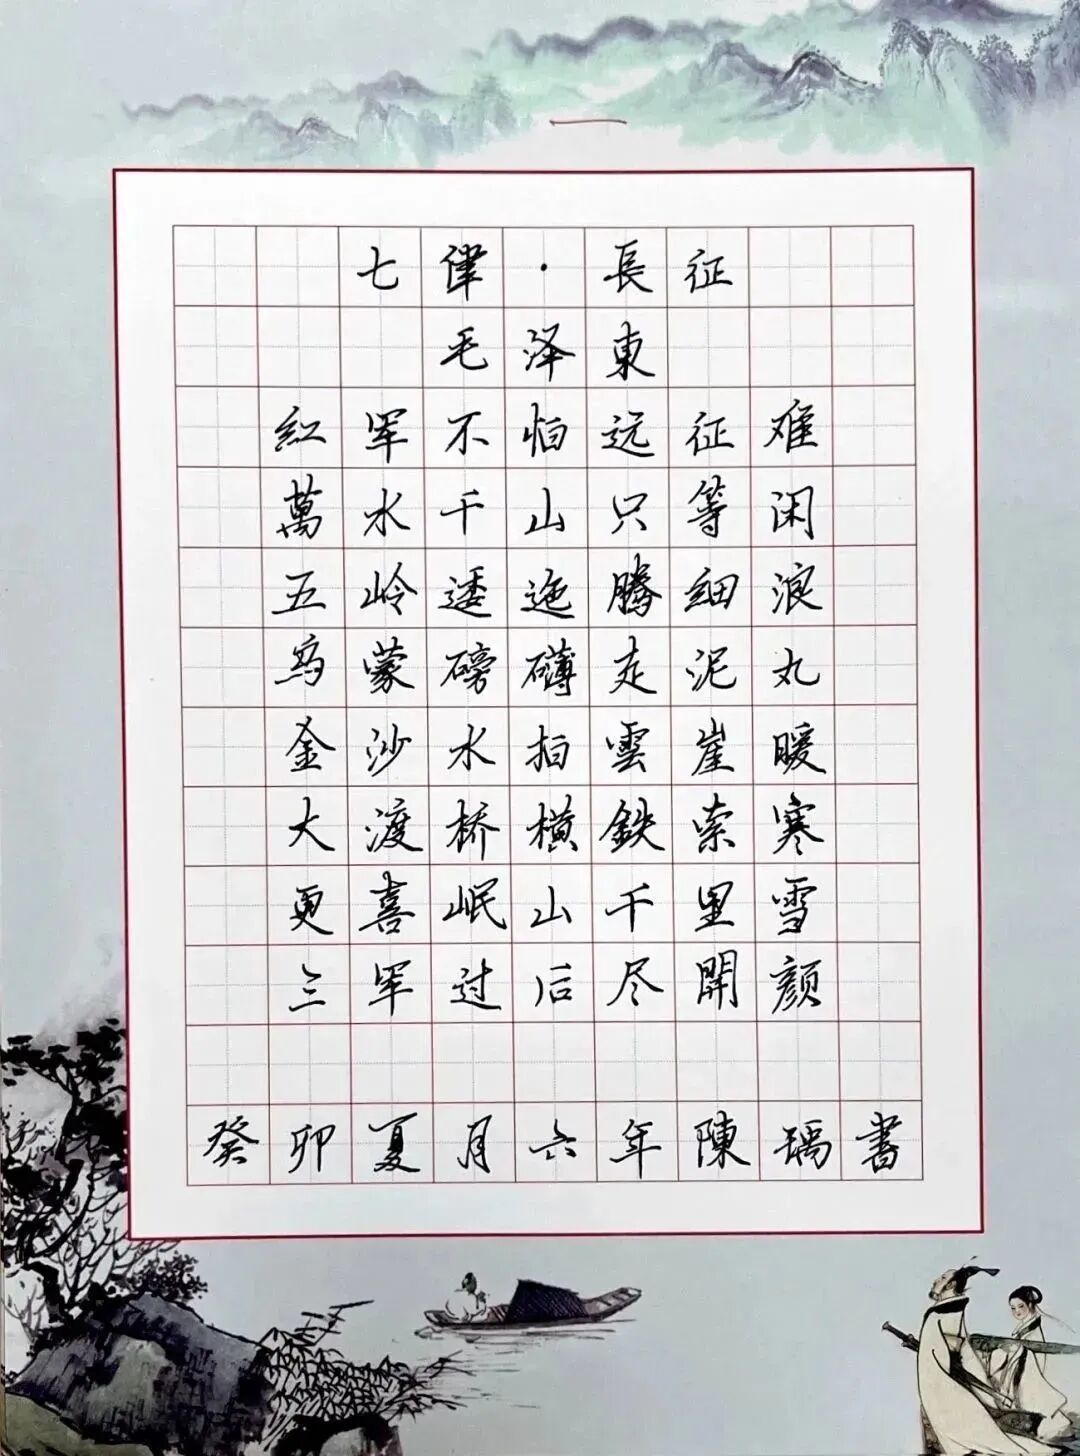 七律·長征
毛泽東
紅军不怕远征难
萬水千山只等闲
五岭逶迤腾细浪
乌蒙磅礴走泥丸
金沙水拍雲崖暖
大渡桥横鉄索寒
更喜岷山千里雪
三军过后尽開顔
癸卯夏月六年陳瑀書